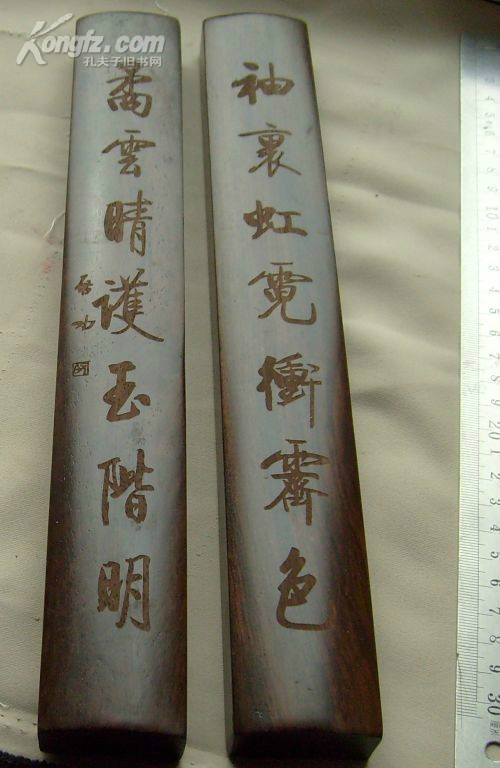 Kongfz.com
孔夫子旧书网
袖裏虹霓衝霽色
矞雲晴護玉階明
启功